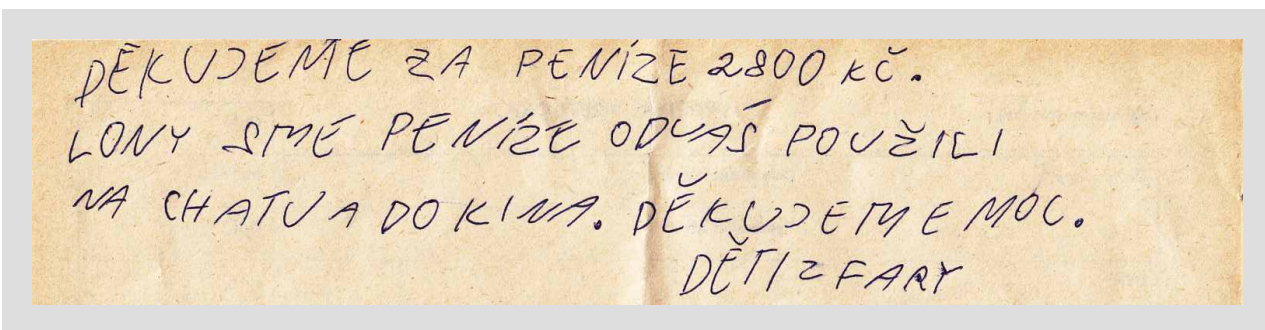 DĚKUJEME ZA PENÍZE 2800 KČ.
LONY SME PENÍZE ODVAŠ POUŽILI
NA CHATU A DO KINA. DĚKUJEME MOC.
DĚTI Z FARY